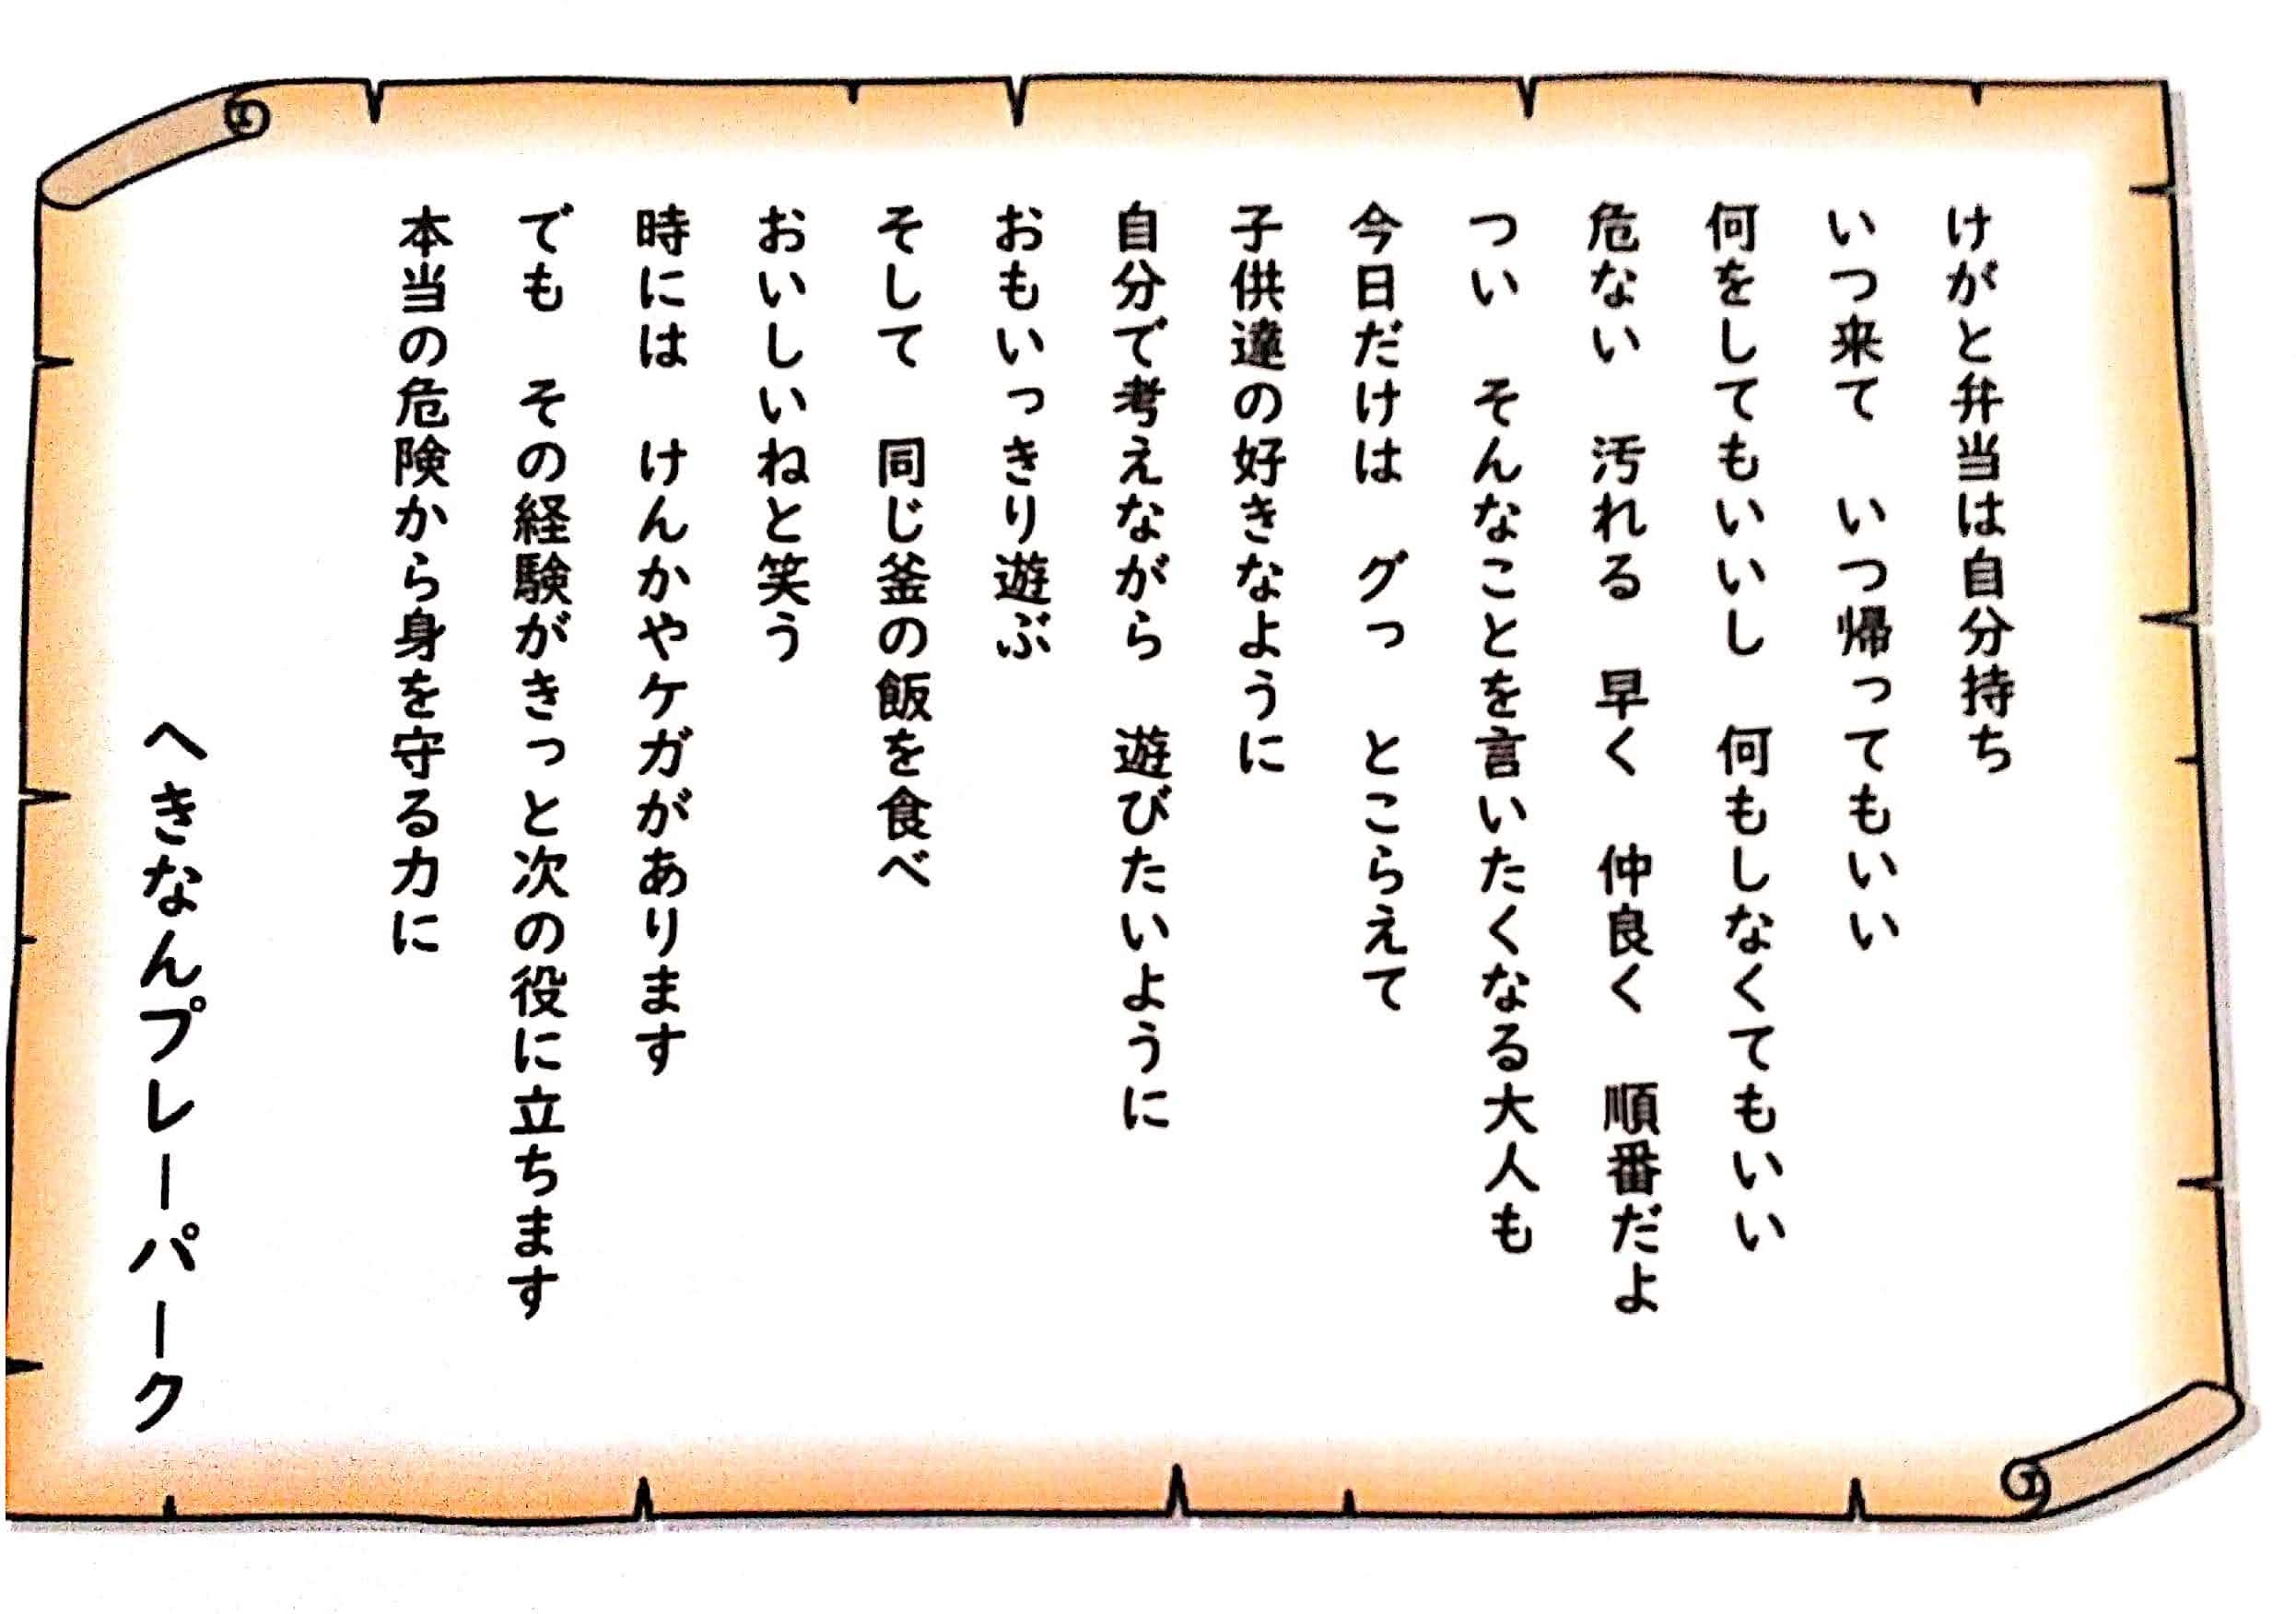 けがと弁当は自分持ち
いつ来て　いつ帰ってもいい
何をしてもいいし　何もしなくてもいい
危ない　汚れる　早く　仲良く　順番だよ
つい　そんなことを言いたくなる大人も
今日だけは　グっ　とこらえて
子供達の好きなように
自分で考えながら　遊びたいように
おもいっきり遊ぶ
そして　同じ釜の飯を食べ
おいしいねと笑う
時には　けんかやケガがあります
でも　その経験がきっと次の役に立ちます
本当の危険から身を守る力に
へきなんプレーパーク